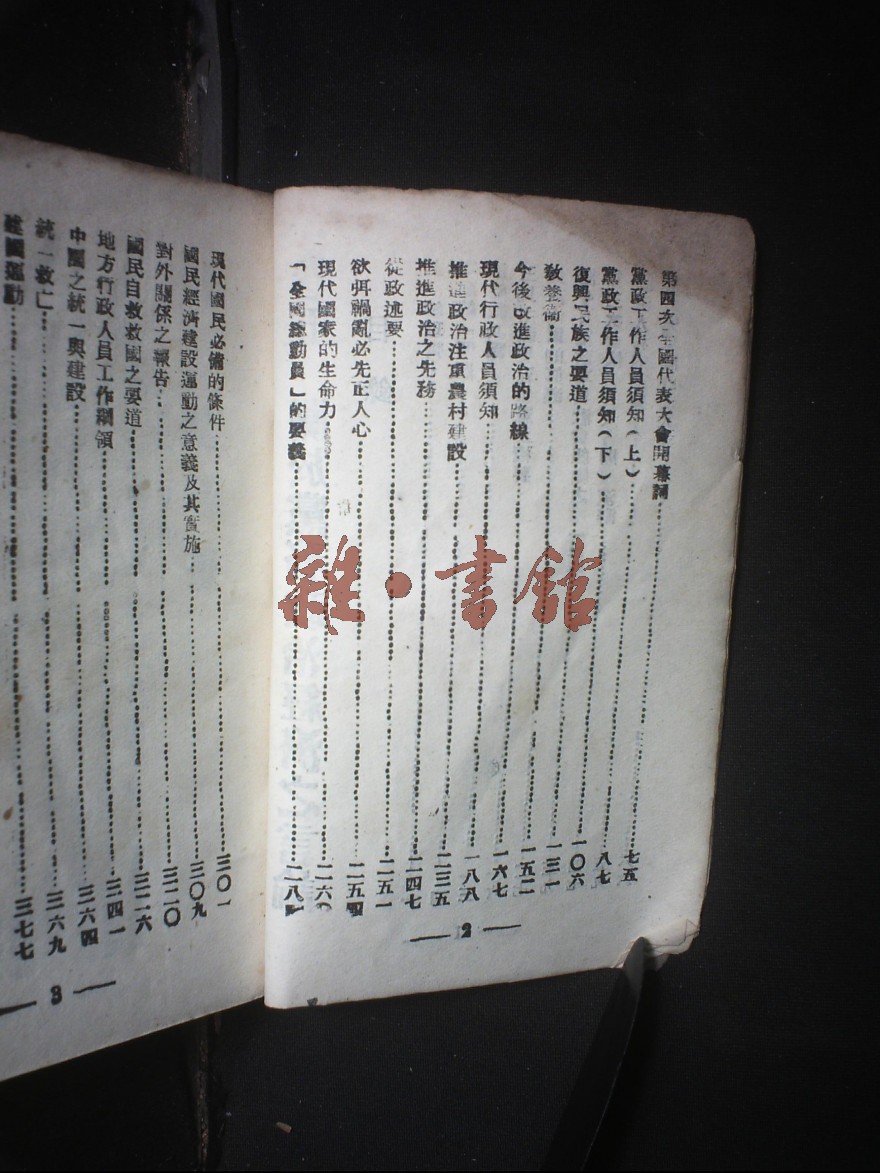 第四次全國代表大會開幕詞……七五
黨政工作人員須知(上)……八七
黨政工作人員須知(下)……一〇六
復興民族之要道……一三一
教養衛……一五二
今後改進政治的路線……一六七
現代行政人員須知……一八八
推進政治注重農村建設……二三五
推進政治之先務……二四七
從政述要……二五一
欲弭禍亂必先正人心……二五四
現代國家的生命力……二六〇
「全國總動員」的要義……二八
— 2 —
現代國民必備的條件……三〇一
國民經濟建設運動之意義及其實施……三〇九
對外關係之報告……三二〇
國民自救救國之要道……三二六
地方行政人員工作綱領……三四一
中國之統一與建設……三六四
統一救亡……三六九
建國運動……三七七
— 3 —
雜·書館